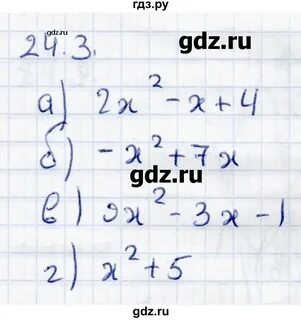 гдз.ру
24.3.
gdz.ru
а) 2x² - x + 4
gdz.ru
б) -x² + 7x
gdz.ru
в) 9x² - 3x - 1
gdz.ru
г) x² + 5
gdz.ru